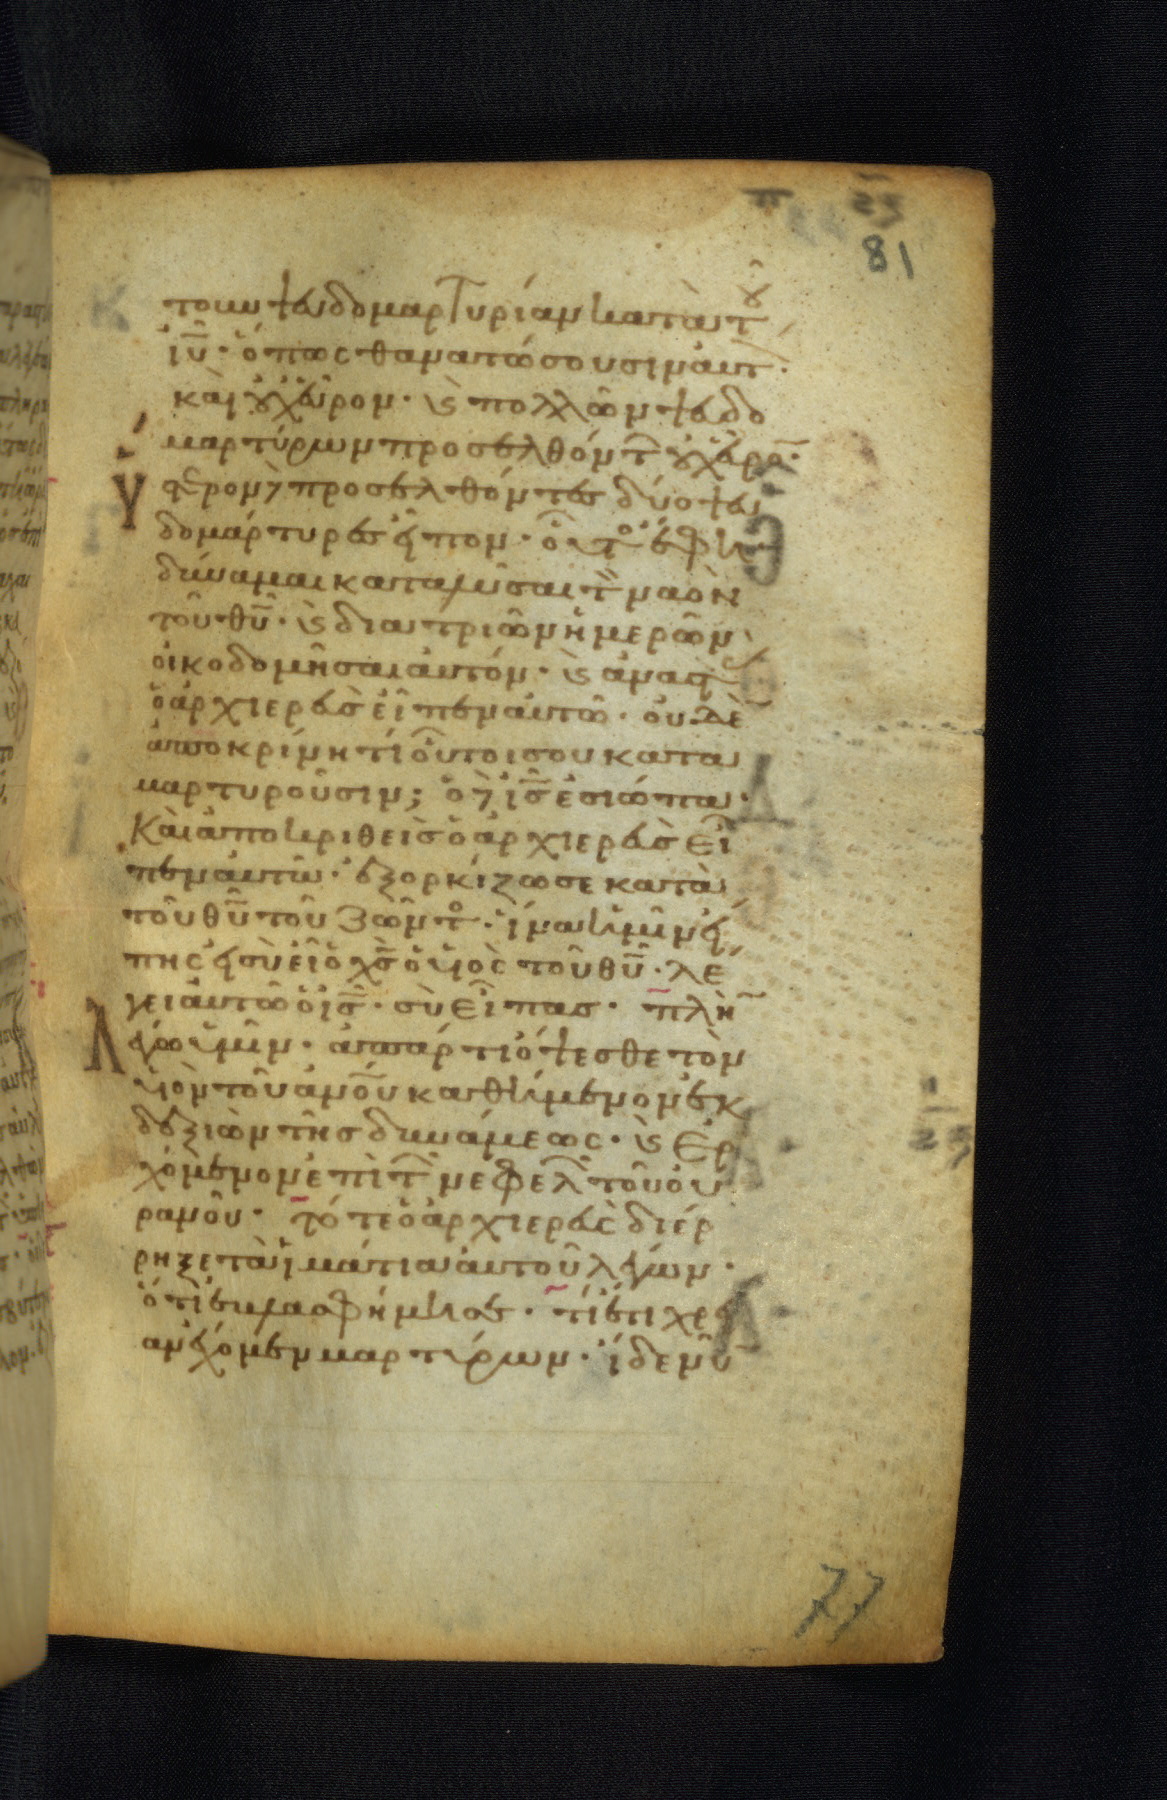 81
τουν ψευδομαρτυρίαν κατὰ τ
ιῦ· ὅπως θανατώσουσιν ἀυτ·
καὶ ουχ εὗρον· ϗ πολλῶν ψευδο
μαρτύρων προσελθόντ ουχ εὗρο̄·
ὕϲτερον δὲ προσελθόντες δύο ψευ
δομάρτυρες εἶπον· οὗτος ἔφη
δύναμαι καταλῦσαι τὸν ναὸν
τοῦ θῦ· ϗ δια τριῶν ἡμερῶν
οἰκοδομῆσαι ἀυτόν· ϗ ἀναστὰς
ὁ ἀρχιερεὺς εἶπεν ἀυτῶ· ουδὲ
ἀποκρίνη τί οὗτοι σου κατα
μαρτυροῦσιν; ὁ δὲ ις̄ ἐσιώπα·
Καὶ ἀποκριθεὶς ὁ ἀρχιερεὺς εἶ
πεν ἀυτῶ· ἐξορκίζω σε κατὰ
τοῦ θῦ τοῦ ζῶντος· ἵνα ἡμῖν εἴ
πης εἰ σὺ εἶ ὁ χς̄ ὁ υἱὸς τοῦ θῦ· λέ
γει ἀυτῶ ὁ ις̄· σὺ εἶπας· πλὴν
λέγω ὑμῖν· ἀπάρτι ὄψεσθε τὸν
υἱὸν τοῦ ἀνοῦ καθήμενον ἐκ
δεξιῶν τῆς δυνάμεως· ϗ ἐρ
χόμενον ἐπὶ τῶν νεφελῶν τοῦ ου
ρανοῦ· τότε ὁ ἀρχιερεὺς διέρ
ρηξε τὰ ἱμάτια ἀυτοῦ λέγων·
ὅτι ἐβλασφήμησε· τί ἔτι χρεί
αν ἔχομεν μαρτύρων· ἴδε νῦ
77